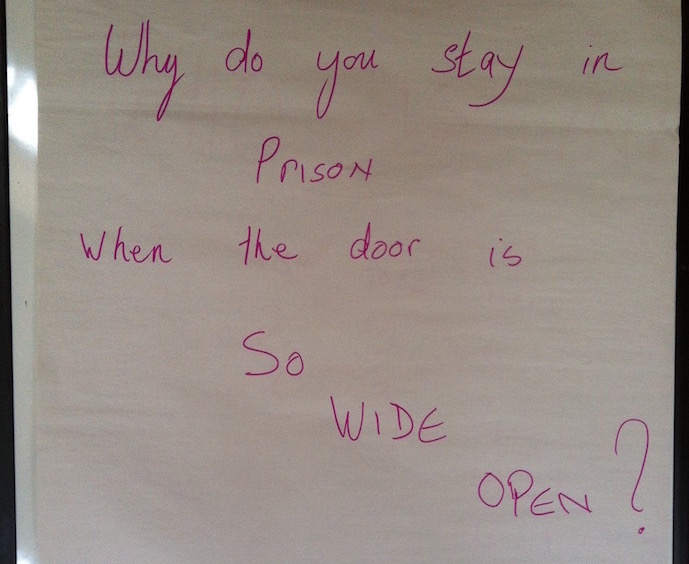 Why do you stay in
PRISON
When the door is
So
WIDE
OPEN?